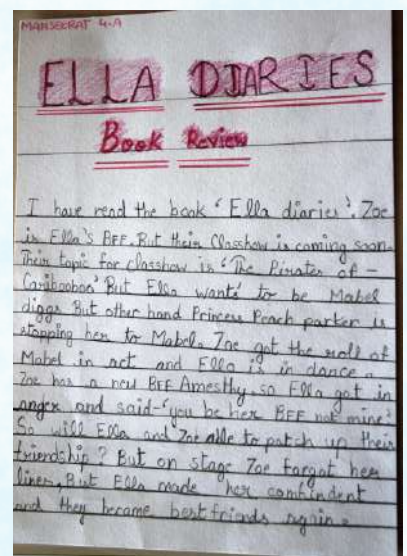 MANSEKRAT 4-A
ELLA DIARIES
Book Review
I have read the book 'Ella diaries'. Zoe
is Ella's BFF. But their Classhow is coming soon.
Their topic for classhow is 'The Pirates of -
Caribooboo' But Ella wants to be Mabel
diggs But other hand Princess Peach parker is
stopping her to Mabel. Zoe got the roll of
Mabel in act and Ella is in dance.
Zoe has a new BFF Amesthy. so Ella got in
anger and said-'you be her BFF not mine'
So will Ella and Zoe able to patch up their
friendship? But on stage Zoe forgot her
lines. But Ella made her combindent
and they became best friends again.